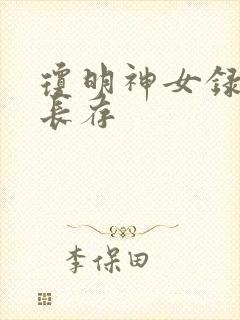 瓊明神女録
長存
李保田